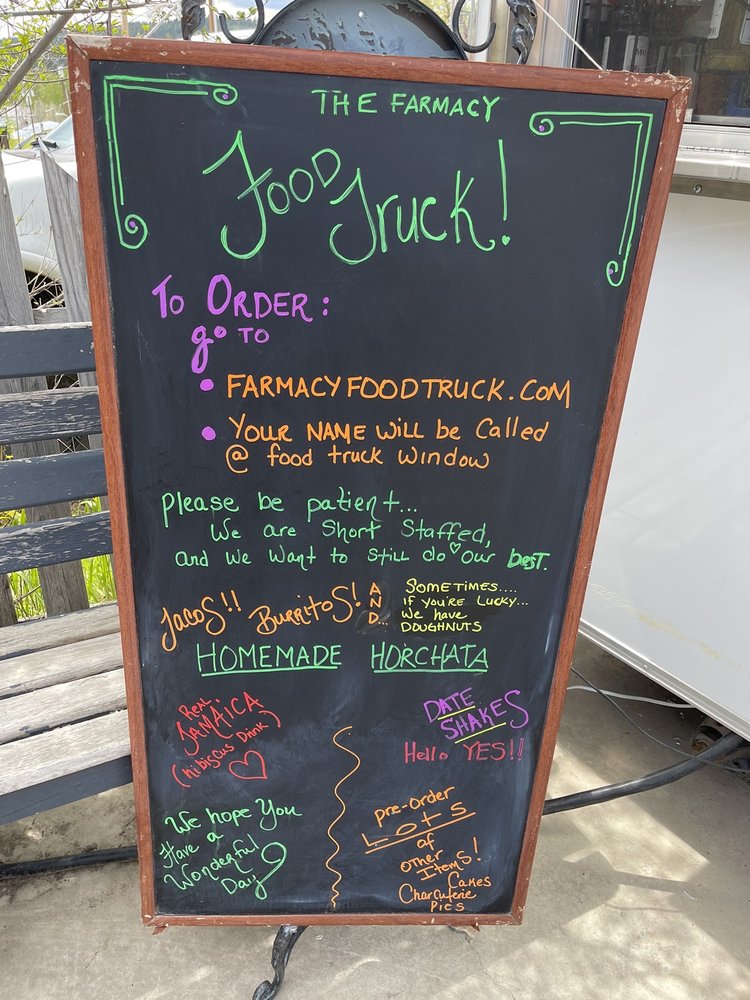 THE FARMACY
Food Truck!
To ORDER:
go TO
• FARMACYFOODTRUCK.COM
• YOUR NAME WILL be Called
@ food truck window
please be patient...
We are Short Staffed,
and We Want to Still do our best.
Tacos!! Burritos! AND...
SOMETIMES....
IF YOU'RE LUCKY...
We have
DOUGHNUTS
HOMEMADE HORCHATA
REAL
JAMAICA
(hibiscus Drink)
DATE
SHAKES
Hello YES!!
We hope You
Have a
Wonderful
Day
pre-Order
LOTS
of
other
Items!
Cakes
Charcuterie
PICS